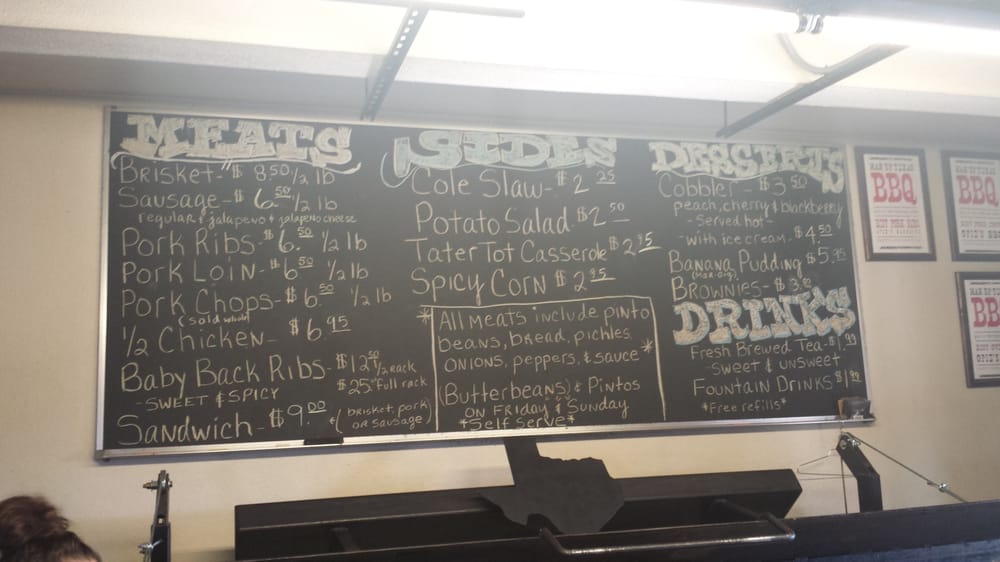 MEATS
BRISKET - $8.50 1/2 lb
SAUSAGE - $6.50 1/2 lb
regular & jalapeno & jalapeno cheese
PORK RIBS - $6.50 1/2 lb
PORK LOIN - $6.50 1/2 lb
PORK CHOPS - $6.50 1/2 lb
(sold whole)
1/2 CHICKEN - $6.95
BABY BACK RIBS - $12.50 1/2 rack
- SWEET & SPICY $25.00 Full rack
SANDWICH - $9.00 (BRISKET, PORK OR SAUSAGE)
SIDES
COLE SLAW - $2.25
POTATO SALAD $2.50
TATER TOT CASSEROLE $2.95
SPICY CORN $2.95
* ALL MEATS include pinto
beans, bread, pickles,
ONIONS, peppers, & sauce *
(Butterbeans) & Pintos
ON FRIDAY & SUNDAY
*Self Serve*
DESSERTS
COBBLER - $3.50
peach, cherry & blackberry
- Served hot -
- with ice cream - $4.50
BANANA PUDDING $5.95
BROWNIES - $3
DRINKS
FRESH BREWED TEA - $1.99
- SWEET & UNSWEET
FOUNTAIN DRINKS $1.99
*Free refills*
BBQ
BBQ
BB